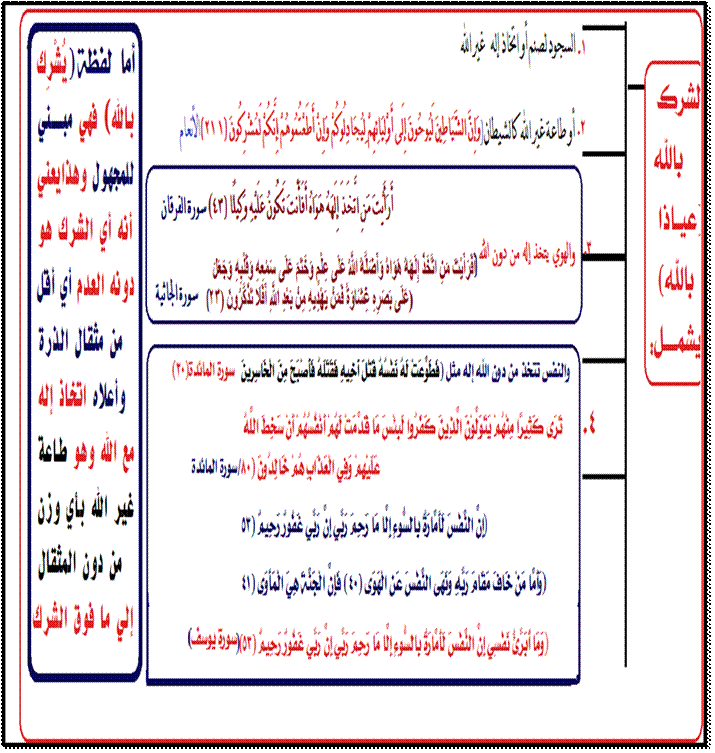 لشرك
بالله
(عياذا
بالله)
يشمل:
١. السجود لصنم أو اتخاذ إله غير الله
٢. أو طاعة غير الله كالشيطان(وَإِنَّ الشَّيَاطِينَ لَيُوحُونَ إِلَى أَوْلِيَائِهِمْ لِيُجَادِلُوكُمْ وَإِنْ أَطَعْتُمُوهُمْ إِنَّكُمْ لَمُشْرِكُونَ (١٢١)الأنعام
أَرَأَيْتَ مَنِ اتَّخَذَ إِلَهَهُ هَوَاهُ أَفَأَنْتَ تَكُونُ عَلَيْهِ وَكِيلًا (٤٣) سورة الفرقان
٣. والهوي يتخذ إله من دون الله
(أَفَرَأَيْتَ مَنِ اتَّخَذَ إِلَهَهُ هَوَاهُ وَأَضَلَّهُ اللَّهُ عَلَى عِلْمٍ وَخَتَمَ عَلَى سَمْعِهِ وَقَلْبِهِ وَجَعَلَ
عَلَى بَصَرِهِ غِشَاوَةً فَمَنْ يَهْدِيهِ مِنْ بَعْدِ اللَّهِ أَفَلَا تَذَكَّرُونَ (٢٣) سورة الجاثية
والنفس تتخذ من دون الله إله مثل (فَطَوَّعَتْ لَهُ نَفْسُهُ قَتْلَ أَخِيهِ فَقَتَلَهُ فَأَصْبَحَ مِنَ الْخَاسِرِينَ سورة المائدة(٣٠)
٤. تَرَى كَثِيرًا مِنْهُمْ يَتَوَلَّوْنَ الَّذِينَ كَفَرُوا لَبِئْسَ مَا قَدَّمَتْ لَهُمْ أَنْفُسُهُمْ أَنْ سَخِطَ اللَّهُ
عَلَيْهِمْ وَفِي الْعَذَابِ هُمْ خَالِدُونَ (٨٠/سورة المائدة
(إِنَّ النَّفْسَ لَأَمَّارَةٌ بِالسُّوءِ إِلَّا مَا رَحِمَ رَبِّي إِنَّ رَبِّي غَفُورٌ رَحِيمٌ (٥٣
(وَأَمَّا مَنْ خَافَ مَقَامَ رَبِّهِ وَنَهَى النَّفْسَ عَنِ الْهَوَى (٤٠) فَإِنَّ الْجَنَّةَ هِيَ الْمَأْوَى (٤١
(وَمَا أُبَرِّئُ نَفْسِي إِنَّ النَّفْسَ لَأَمَّارَةٌ بِالسُّوءِ إِلَّا مَا رَحِمَ رَبِّي إِنَّ رَبِّي غَفُورٌ رَحِيمٌ (٥٣)(سورة يوسف)
أما لفظة(يُشْرِك
بالله) فهي مبني
للمجهول وهذايعني
أنه أي الشرك هو
دونه العدم أي أقل
من مثقال الذرة
وأعلاه اتخاذ إله
مع الله وهو طاعة
غير الله بأي وزن
من دون المثقال
إلي ما فوق الشرك